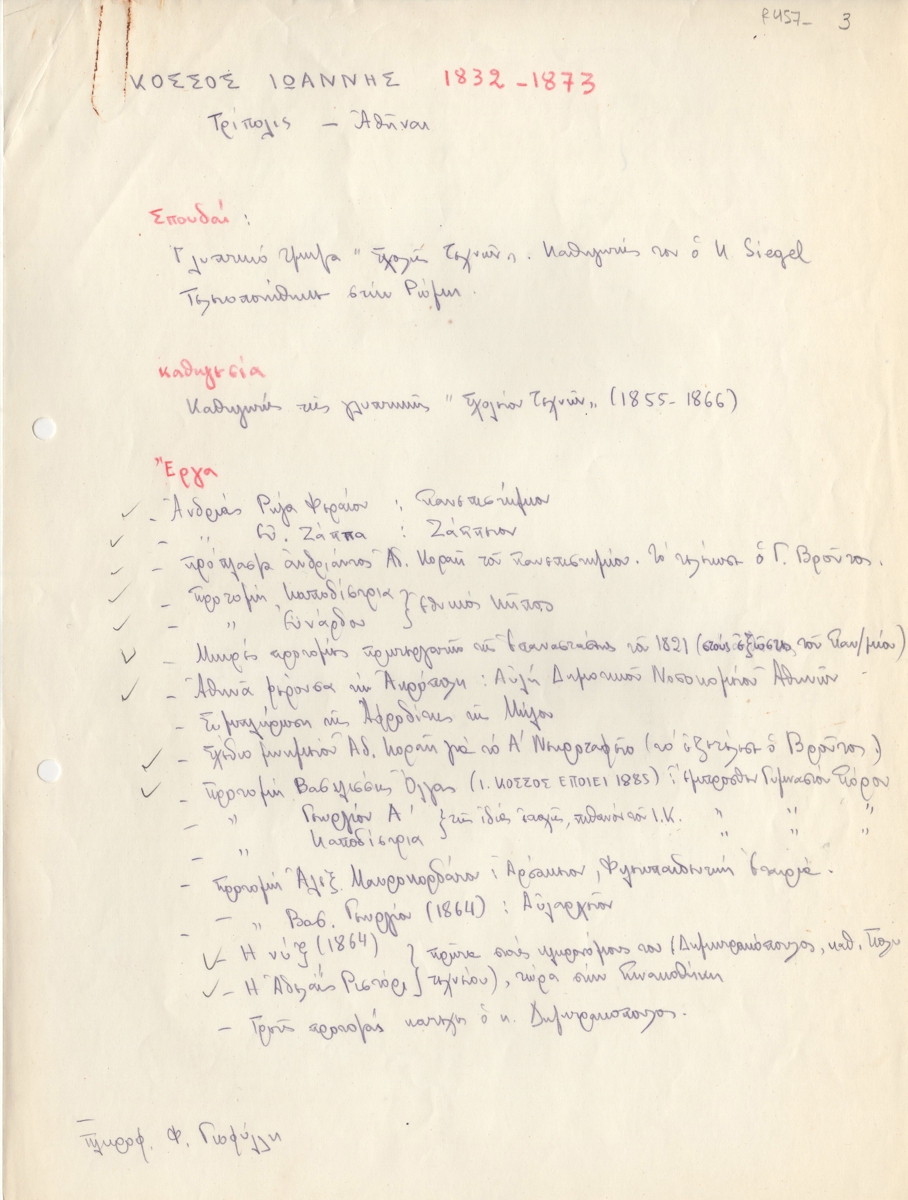 R457- 3
ΚΟΣΣΟΣ ΙΩΑΝΝΗΣ 1832-1873
Τρίπολις - Ἀθῆναι
Σπουδαί :
Γλυπτικό τμῆμα " Σχολῆς Τεχνῶν„. Καθηγητής του ὁ Κ. Siegel
Τελειοποιήθηκε στήν Ρώμη.
Καθηγεσία
Καθηγητής τῆς γλυπτικῆς " Σχολεῖον Τεχνῶν„ (1855-1866)
Ἔργα
- Ἀνδριάς Ρήγα Φεραίου : Πανεπιστήμιον
- " Εὐ. Ζάππα : Ζάππειον
- Πρόπλασμα ἀνδριάντος Ἀδ. Κοραῆ τοῦ Πανεπιστημίου. Τό τελείωσε ὁ Γ. Βροῦτος.
- Προτομή Καποδίστρια } Ἐθνικός Κῆπος
- " Εὐνάρδου
- Μικρές προτομές πρωτεργατῶν τῆς Ἐπαναστάσης τοῦ 1821 (στούς ἐξῶστες τοῦ Παν/μίου)
- Ἀθηνᾶ φέρουσα τήν Ἀκρόπολη : Αὐλή Δημοτικοῦ Νοσοκομείου Ἀθηνῶν
- Συμπλήρωση τῆς Ἀφροδίτης τῆς Μήλου
- Σχέδιο μνημείου Ἀδ. Κοραῆ γιά τό Α' Νεκροταφεῖο (τό ἐξετέλεσε ὁ Βροῦτος)
- Προτομή Βασιλίσσης Ὄλγας (Ι. ΚΟΣΣΟΣ ΕΠΟΙΕΙ 1885) : ἔμπροσθεν Γυμνασίου Πόρου
- " Γεωργίου Α' } τῆς ἰδίας ἐποχῆς, πιθανόν τοῦ Ι.Κ. " " "
- " Καποδίστρια " " "
- Προτομή Ἀλεξ. Μαυροκορδάτου : Ἀρσάκειον, Φιλεκπαιδευτική Ἑταιρεία.
- " Βασ. Γεωργίου (1864) : Αὐλαρχεῖον
- Η νύξ (1864) } πρῶτα στούς κληρονόμους του (Δημητρακόπουλος, καθ. Πολυ
- Η Ἀδελαΐς Ριστόρι } τεχνείου), τώρα στήν Πινακοθήκη
- Τρεῖς προτομές κατέχει ὁ κ. Δημητρακόπουλος.
Πληροφ. Φ. Γιοφύλλη